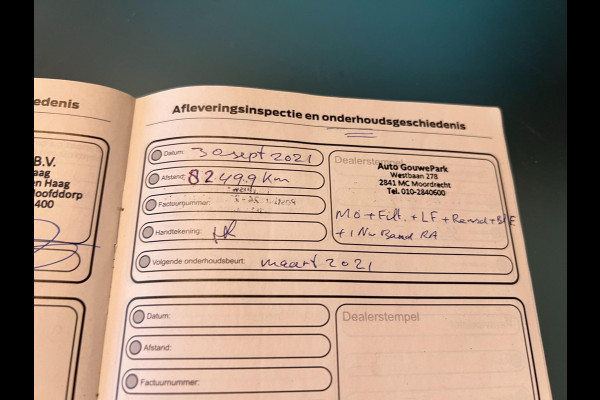 edenis
B.V.
aag
en Haag
Hoofddorp
400
Afleveringsinspectie en onderhoudsgeschiedenis
Datum: 30 sept 2021
Afstand: 82.499 km
Factuurnummer:
Handtekening:
Volgende onderhoudsbeurt: maart 2021
Dealerstempel
Auto GouwePark
Westbaan 278
2841 MC Moordrecht
Tel. 010-2840600
Mo + Filt. + LF + Remd +
+ 1 Nw Band RA
Datum:
Afstand:
Factuurnummer:
Dealerstempel